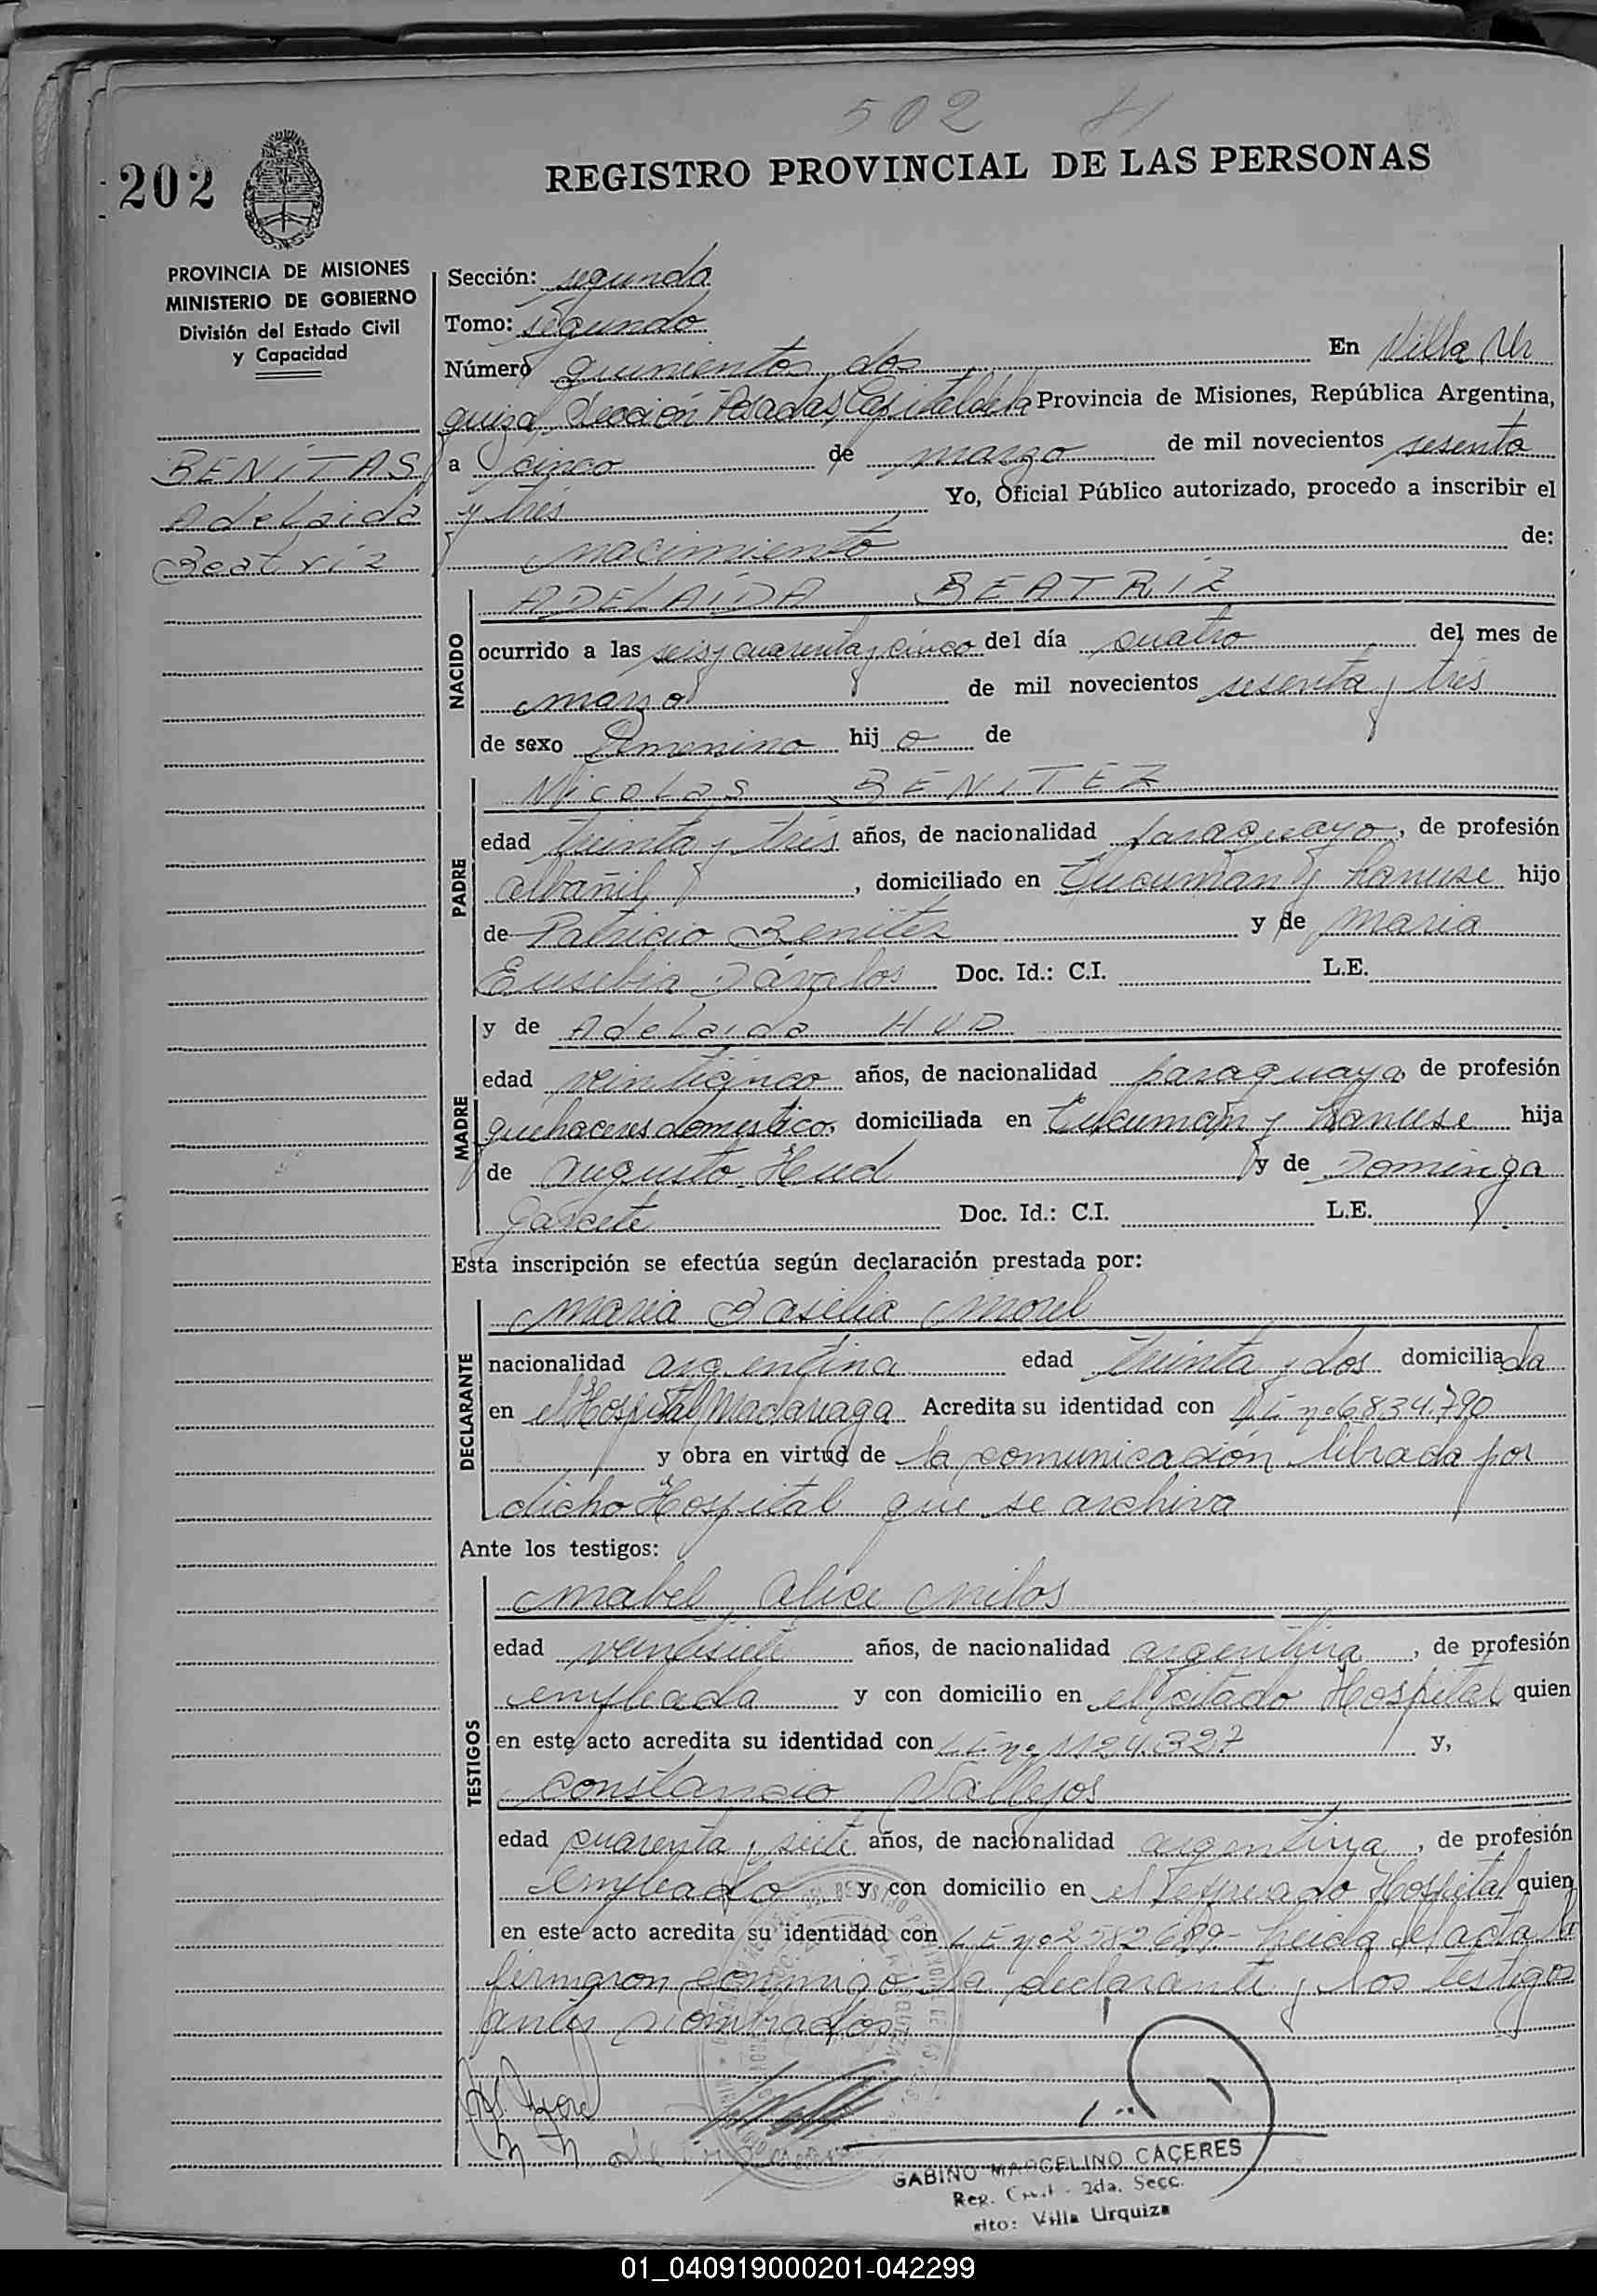 502 H
202
REGISTRO PROVINCIAL DE LAS PERSONAS
PROVINCIA DE MISIONES
MINISTERIO DE GOBIERNO
División del Estado Civil
y Capacidad
BENITAS
Adelaida
Beatriz
Sección: segunda
Tomo: segundo
Número quinientos dos En Villa Ur
quiza, Sección Posadas, Capital de la Provincia de Misiones, República Argentina,
a cinco de marzo de mil novecientos sesenta
y tres Yo, Oficial Público autorizado, procedo a inscribir el
nacimiento de:
NACIDO
ADELAIDA BEATRIZ
ocurrido a las seis y cuarenta y cinco del día cuatro del mes de
marzo de mil novecientos sesenta y tres
de sexo femenino hij a de
PADRE
Nicolas BENITEZ
edad treinta y tres años, de nacionalidad paraguayo, de profesión
albañil, domiciliado en Tucumán y Lanuse hijo
de Patricio Benitez y de Maria
Eusebia Dávalos Doc. Id.: C.I. L.E.
MADRE
y de Adelaida HUD
edad veinticinco años, de nacionalidad paraguaya de profesión
quehaceres domestico, domiciliada en Tucumán y Lanuse hija
de Augusto Hud y de Dominga
Garcete Doc. Id.: C.I. L.E.
Esta inscripción se efectúa según declaración prestada por:
DECLARANTE
Maria Basilia Morel
nacionalidad argentina edad treinta y dos domiciliada
en el Hospital Madariaga Acredita su identidad con nº 6834.790
y obra en virtud de la comunicación librada por
dicho Hospital que se archiva
Ante los testigos:
TESTIGOS
Mabel Alice Milos
edad veintisiete años, de nacionalidad argentina, de profesión
empleada y con domicilio en el citado Hospital quien
en este acto acredita su identidad con nº 1124.327 y,
Constancio Vallejos
edad cuarenta y siete años, de nacionalidad argentina, de profesión
empleado y con domicilio en el expresado Hospital quien
en este acto acredita su identidad con L E nº 2582689.- Leida el acta la
firmaron conmigo la declarante y los testigos
antes nombrados
GABINO MARCELINO CACERES
Reg. Civil - 2da. Secc.
Villa Urquiza
01_040919000201-042299